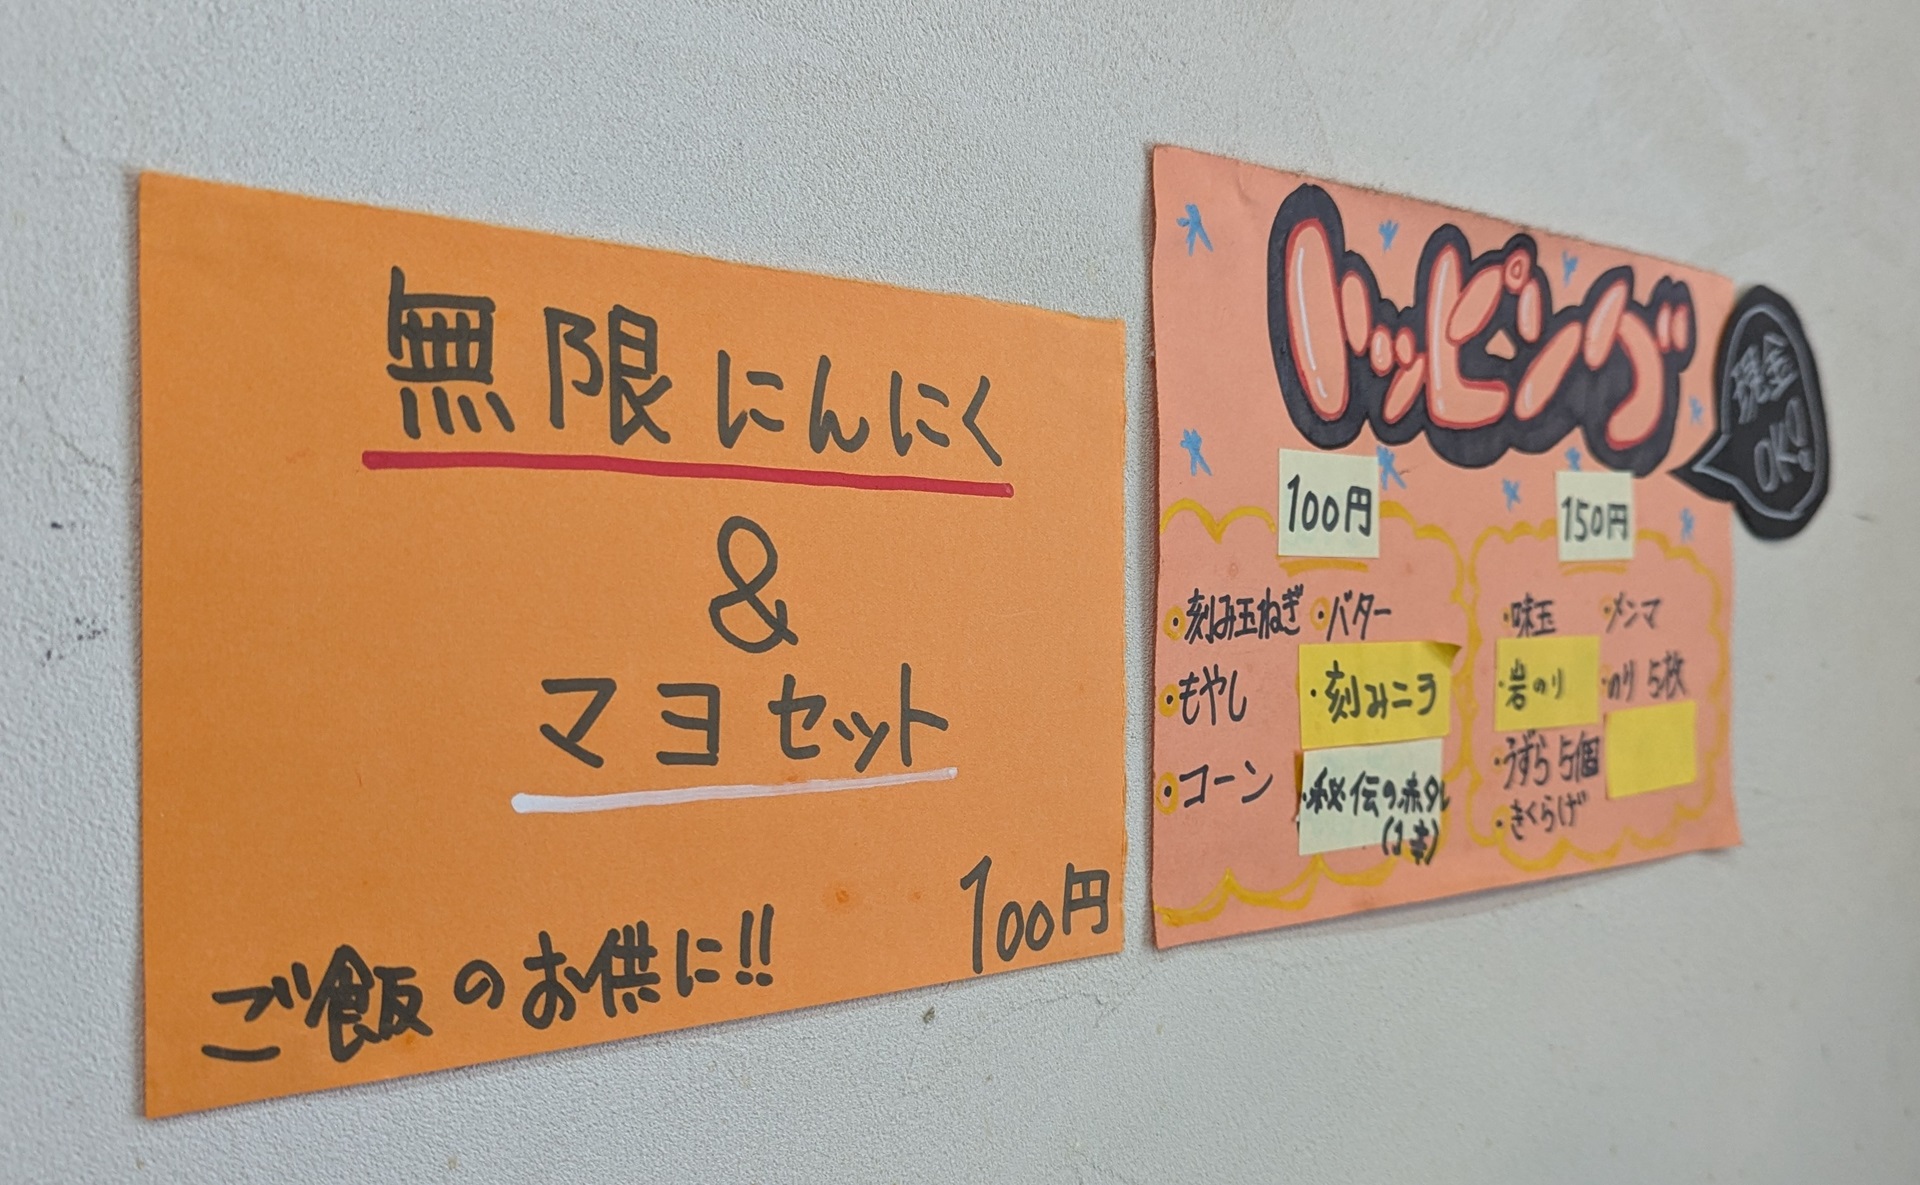 無限にんにく
&
マヨセット
ご飯のお供に!!
100円
トッピング
現金
OK!
100円
・刻み玉ねぎ
・バター
・もやし
・刻みニラ
・コーン
・秘伝の赤タレ
(1辛)
150円
・味玉
・メンマ
・岩のり
・のり 5枚
・うずら 5個
・きくらげ